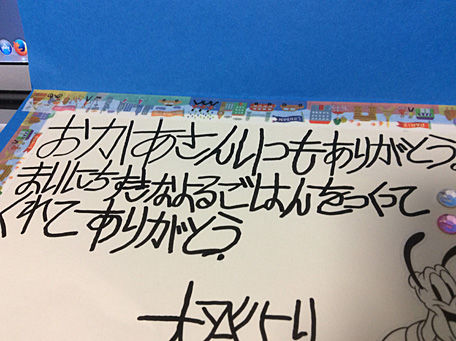 おかあさんいつもありがとう。
まいにちすきなよるごはんをつくって
くれてありがとう。